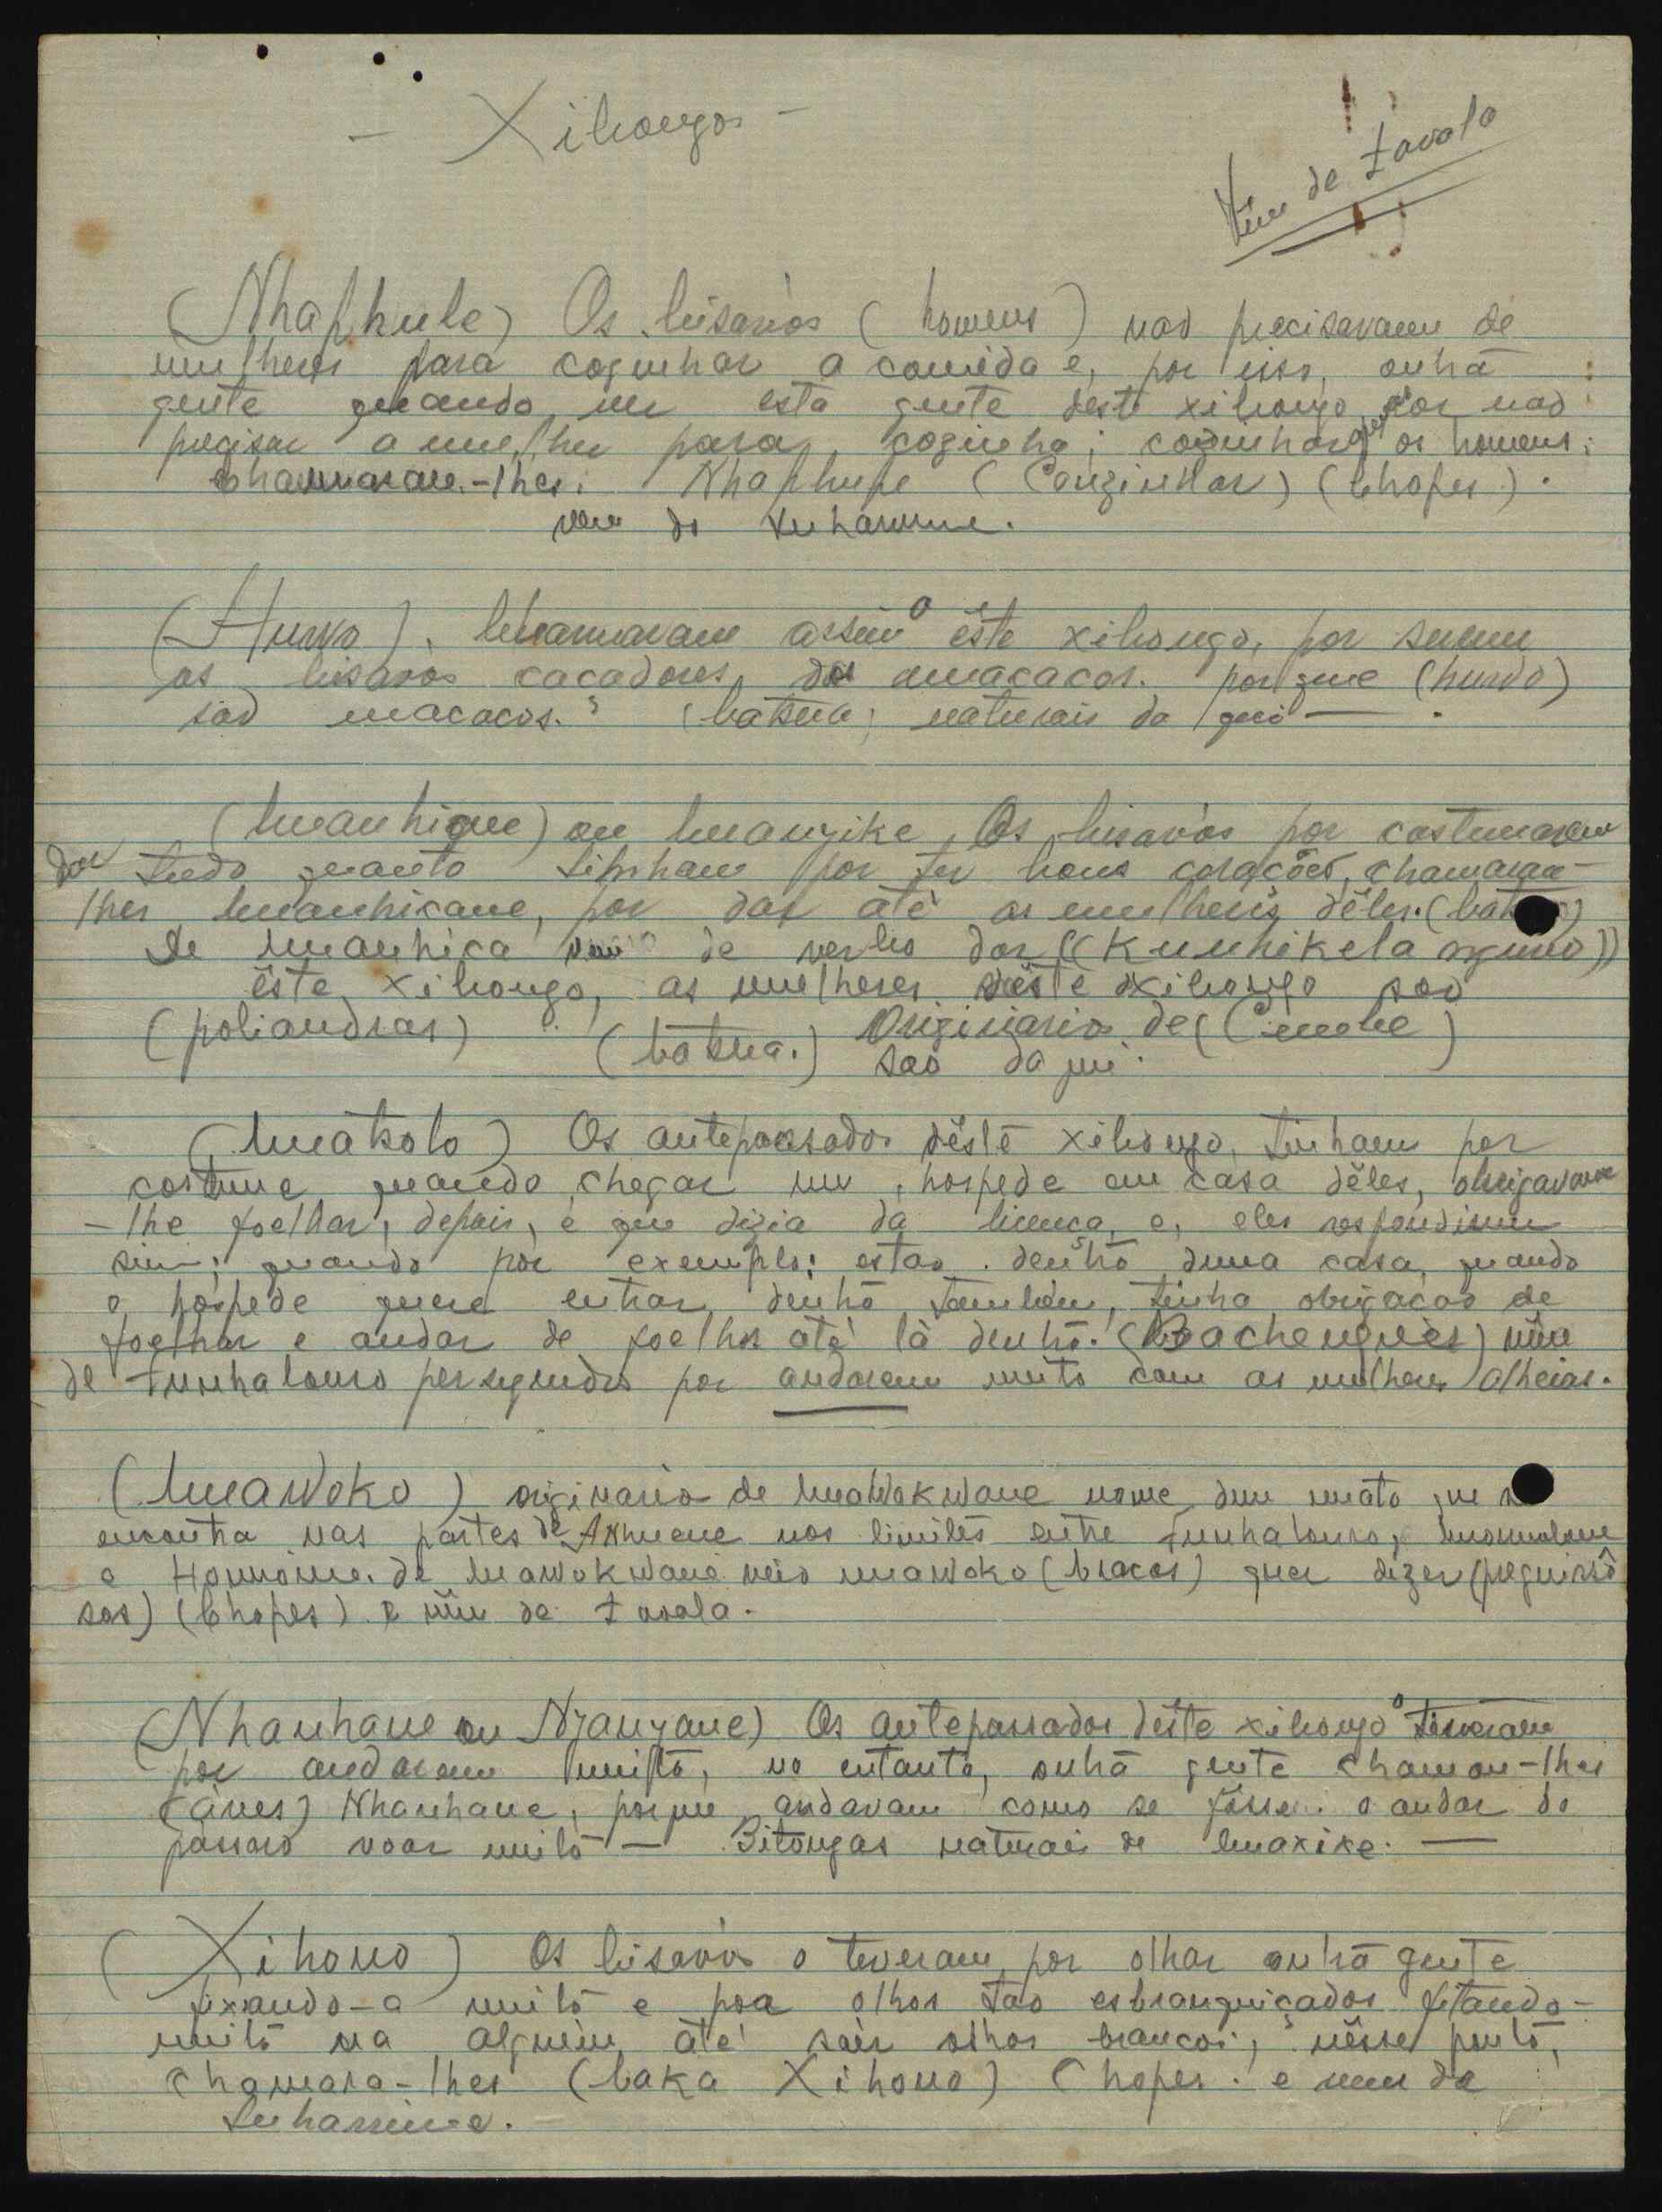 - Xibongos -
Vêm de Zavala
(Nhaphule) Os bisavós (homens) nao precisavam de
mulheres para cozinhar a comida e, por isso, outra
gente quando ver esta gente deste xibongo por nao
precisar a mulher para cozinha; cozinhar os homens;
chamaram-lhes: Nhaphupe (Cozinhar) (Chopes).
vem de Inharrime.
(Hunvo), Chamavam assim o êste xibongo, por serem
os bisavos caçadores dos macacos. porque (hundo)
são macacos. (batsua) naturais da qui —.
(Muanhique) ou Muanyike. Os bisavós por costumarem
dar tudo quanto tinham por ter bons corações, chamaram-
lhes Muanhicane, por dar até as mulheres dêles. (batsua)
De muanhica vem de verbo dar ((Kunhikela
êste xibongo, as mulheres dêste xibongo sao
(poliandras) (batsua.) Originario de (Cimobe)
sao da qui.
(Muatsolo) Os antepassados dêste xibongo, tinham por
costume quando chegar um hospede em casa dêles, obrigavam
-lhe joelhar, depois, é que dizia da licença, e, eles respondiam
sim; quando por exemplo: estao dentro duma casa, quando
o hospede quere entrar dentro tambem, tinha obrigação de
joelhar e andar de joelhos até lá dentro. (Bachengues) vêm
de Funhalouro perseguidos por andarem muito com as mulheres alheias.
(Mawoko) originario de Mawokwane nome dum mato que se
encontra nas partes de nos limites entre Funhalouro,
e Homoine. de Mawokwane veio mawoko (braços) quer dizer (preguiçosô
sos) (Chopes) e vêm de Zavala.
(Nhanhane ou Nyanyane) Os antepassados dêste xibongo o tiveram
por andarem muito, no entanto, outra gente chamou-lhes
(aves) Nhanhane, porque andavam como se fosse o andar do
passaro voar muito — Bitongas naturais de Maxixe. —
(Xihono) Os bisavós o teveram por olhar outra gente
fixando-a muito e por olhos tao esbranquiçados fitando-
muito na alguém até sair olhos brancos; nêsse ponto,
chamara-lhes (baka Xihono) Chopes. e vem de
Inharrime.